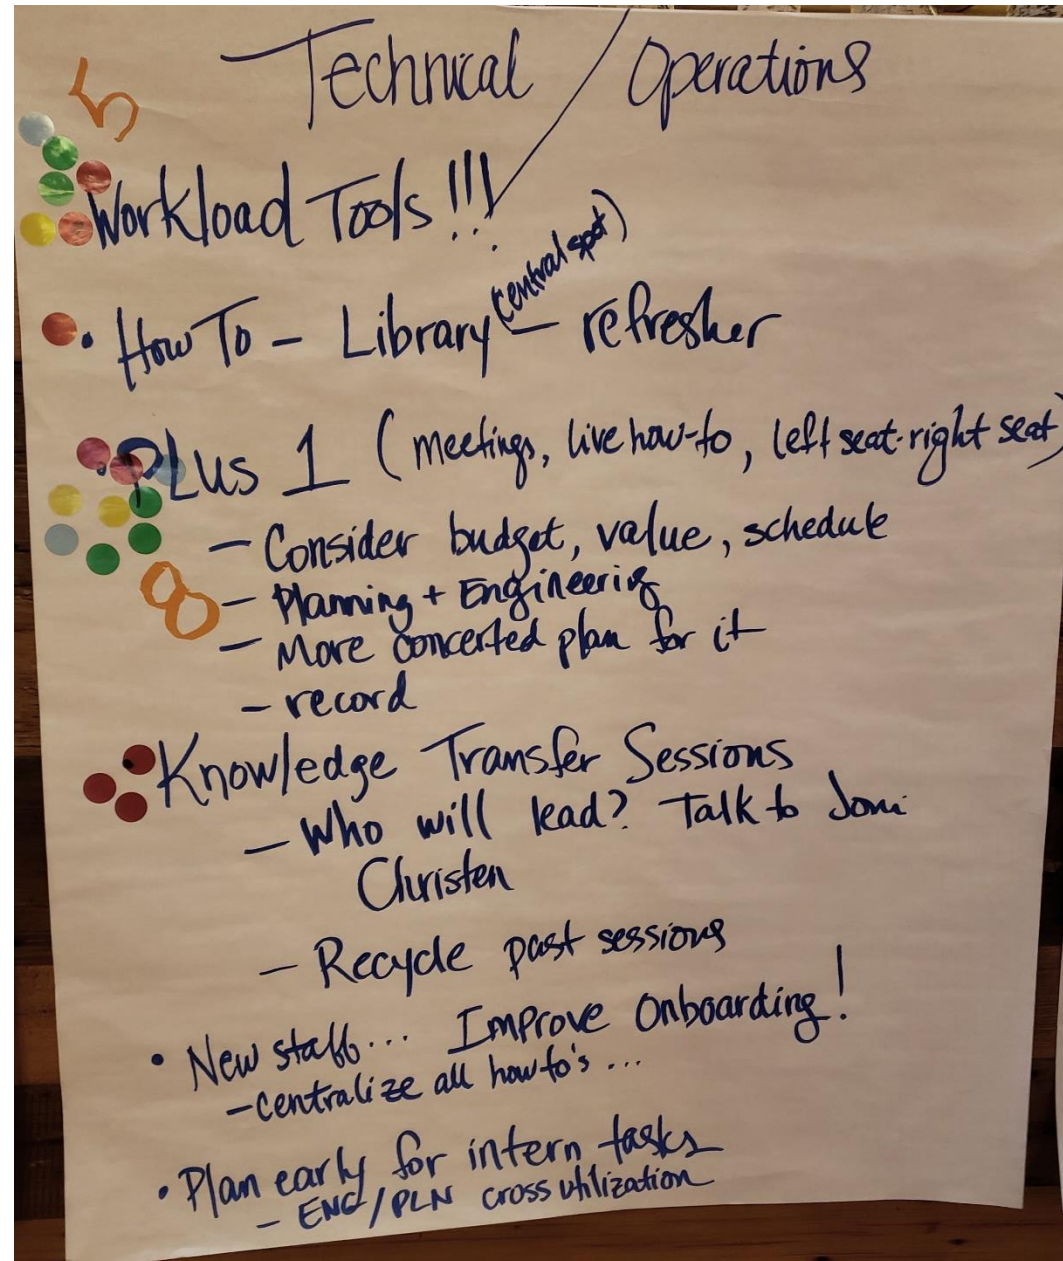 Technical / Operations
5
Workload Tools !!!
• How To - Library (central spot) - refresher
• Plus 1 (meetings, live how-to, left seat-right seat)
- Consider budget, value, schedule
8
- Planning + Engineering
- More concerted plan for it
- record
• Knowledge Transfer Sessions
- Who will lead? Talk to Joni
Christen
- Recycle past sessions
• New staff... Improve Onboarding!
- centralize all how to's ...
• Plan early for intern tasks
- ENG/PLN cross utilization